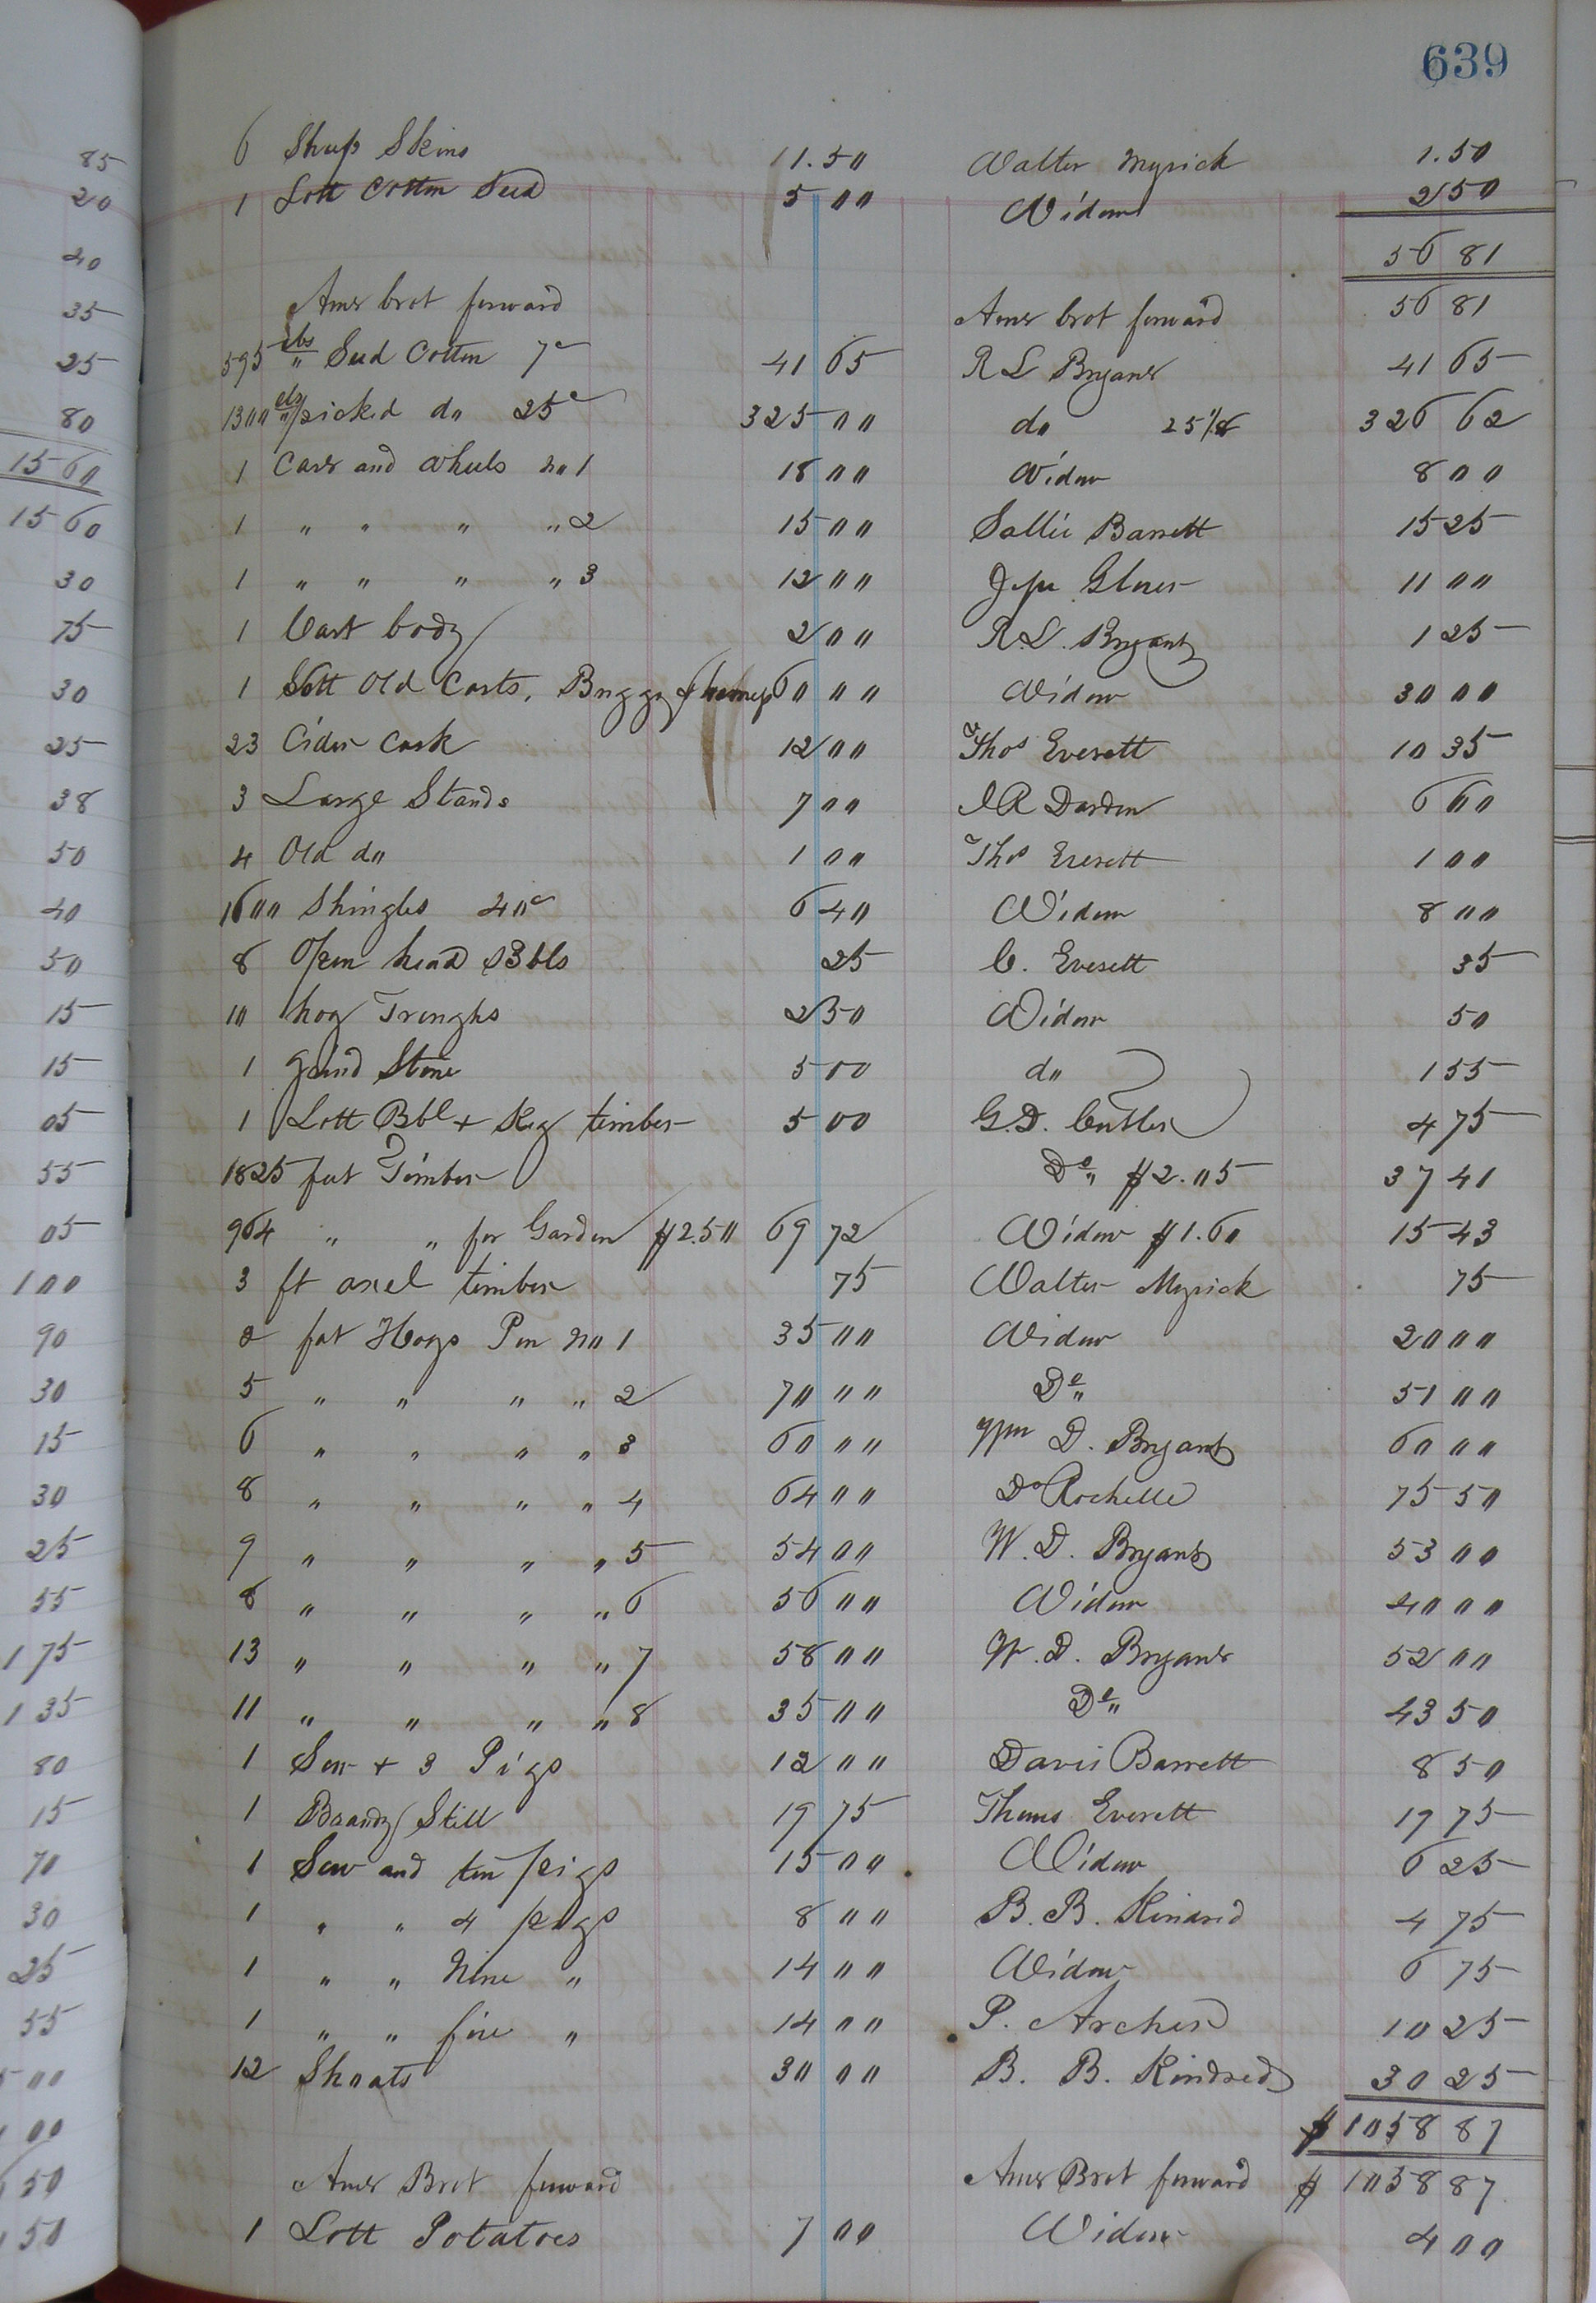 639
85
20
40
35
25
80
15 60
15 60
30
75
30
25
38
50
40
50
15
15
05
55
05
1 00
90
30
15
30
25
55
1 75
1 35
80
15
70
30
25
55
00
00
50
50
6 Sheep Skins 1 1.50 Walter Myrick 1.50
1 Lott Cotton Seed 5 00 Widow 2 50
56 81
Amt brot forward Amt brot forward 56 81
595 lbs " Seed Cotton 7c 41 65 R L Bryant 41 65
1300 picked do 25c 325 00 do 25 1/8 326 62
1 Cart and Wheels no 1 18 00 Widow 8 00
1 " " " " 2 15 00 Sallie Barrett 15 25
1 " " " " 3 12 00 Glover 11 00
1 Cart body 2 00 R. L. Bryant 1 25
1 Lott Old Carts, Buggy & 60 00 Widow 30 00
23 Cider Cask 12 00 Thos Everett 10 35
3 Large Stands 7 00 Darden 6 60
4 Old do 1 00 Thos Everett 1 00
1600 Shingles 40c 6 40 Widow 8 00
8 Open head Bbls 25 C. Everett 35
10 hog Troughs 2 50 Widow 50
1 Grind Stone 5 00 do 1 55
1 Lott Bbl + Keg timber 5 00 G. D. Cutler 4 75
1825 feet Timber Do " $2.05 37 41
964 " " for Garden $2.50 69 72 Widow $1.60 15 43
3 ft axel timber 75 Walter Myrick 75
2 fat Hogs Pen no 1 35 00 Widow 20 00
5 " " " " 2 70 00 Do " 51 00
6 " " " " 3 60 00 Wm D. Bryant 60 00
8 " " " " 4 64 00 Do Rochelle 75 50
9 " " " " 5 54 00 W. D. Bryant 53 00
8 " " " " 6 56 00 Widow 40 00
13 " " " " 7 58 00 W. D. Bryant 52 00
11 " " " " 8 35 00 Do " 43 50
1 Sow + 3 Pigs 12 00 Davis Barrett 8 50
1 Brandy Still 19 75 Thomas Everett 19 75
1 Sow and ten pigs 15 00 Widow 6 25
1 " " 4 pigs 8 00 B. B. Kindred 4 75
1 " " Nine " 14 00 Widow 6 75
1 " " five " 14 00 P. Archer 10 25
12 Shoats 30 00 B. B. Kindred 30 25
$ 1058 87
Amt Brot forward Amt Brot forward $ 1058 87
1 Lott Potatoes 7 00 Widow 4 00